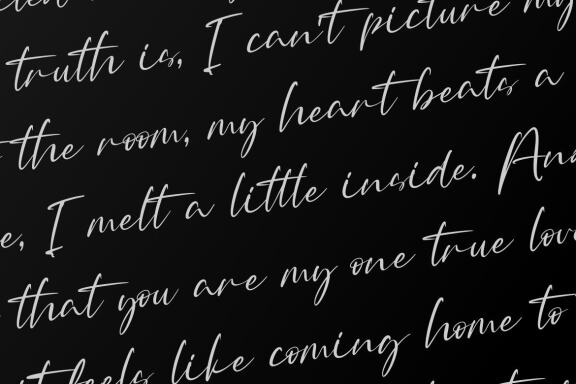 truth is, I can't picture my
the room, my heart beats a
I melt a little inside.
that you are my one true
feels like coming home to